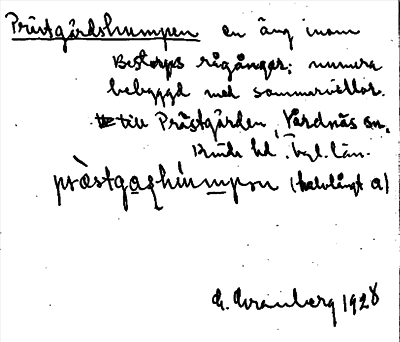 Prästgårdshumpen en äng inom
Bestorps rågångar; numera
bebyggd med sommarvillor.
till Prästgården, Vårdnäs sn,
Kinda hd, Ögl. län.
(halvlångt a)
G. Kranberg 1928